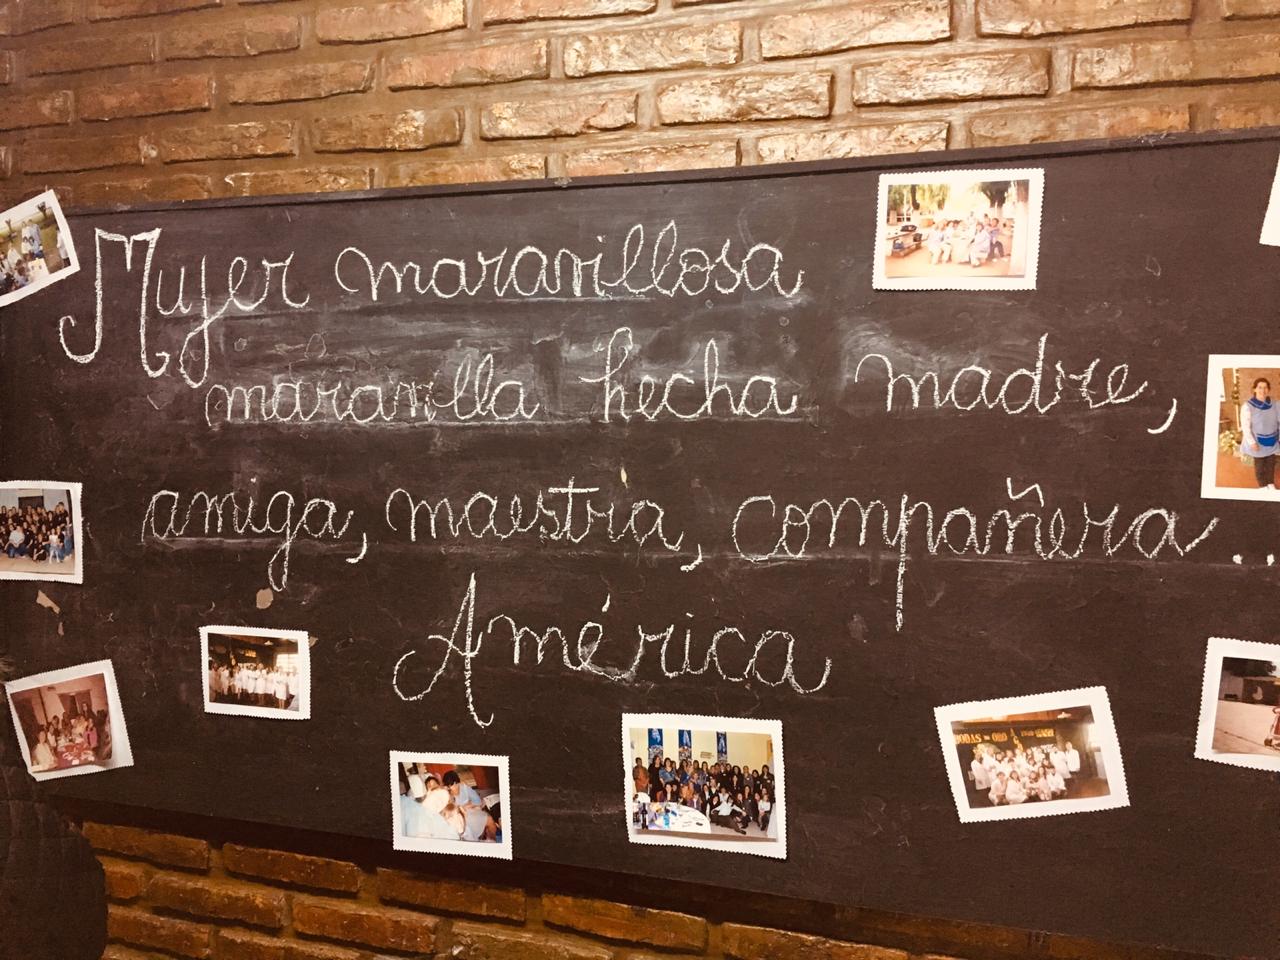 Mujer maravillosa
maravilla hecha madre,
amiga, maestra, compañera...
América
BODAS DE ORO